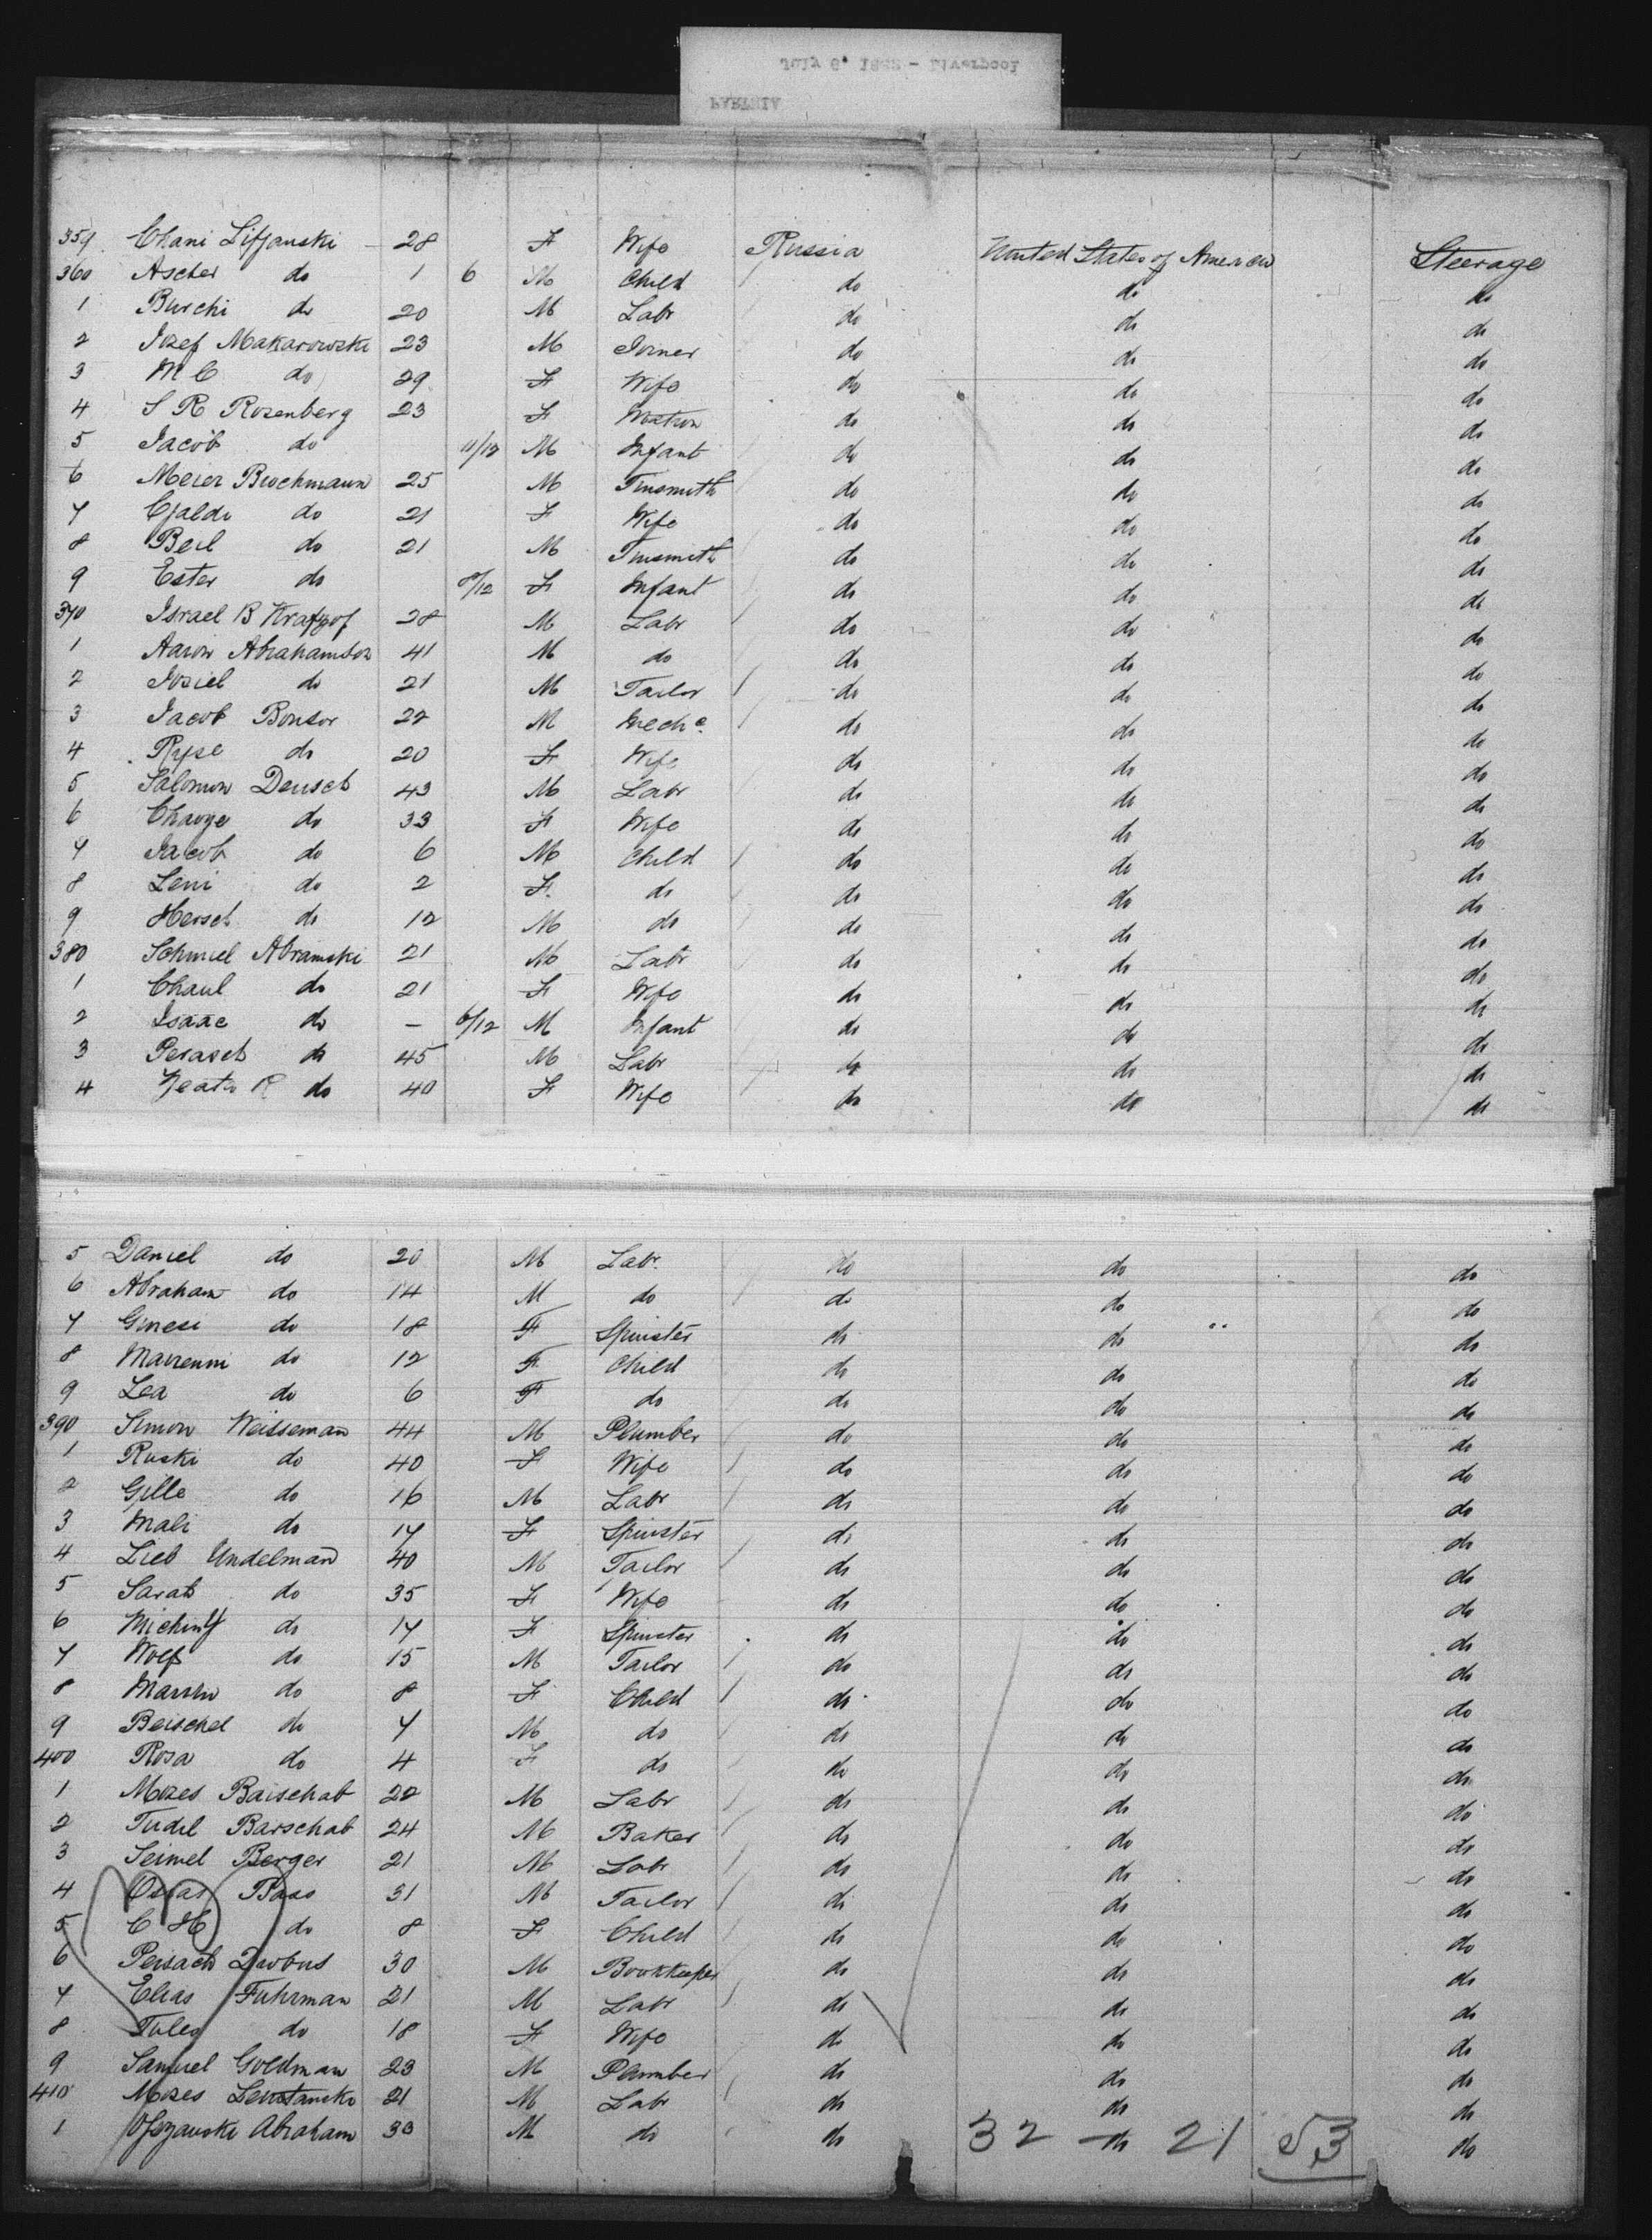 July 6, 1882 - Liverpool
359 Chani Lifjanski - 28 F Wife Russia United States of America Steerage
360 Ascher do 1 6 M Child do do do
1 Burchi do 20 M Labr do do do
2 Jozef Makarowski 23 M Joiner do do do
3 M C do 29 F Wife do do do
4 S R Rosenberg 23 F Matron do do do
5 Jacob do 11/12 M Infant do do do
6 Meier Brochmann 25 M Tinsmith do do do
7 Cjaldi do 21 F Wife do do do
8 Beil do 21 M Tinsmith do do do
9 Ester do 8/12 F Infant do do do
370 Israel B 28 M Labr do do do
1 Aaron Abrahamson 41 M do do do do
2 Josiel do 21 M Tailor do do do
3 Jacob Bonsor 22 M Mechc do do do
4 Ryse do 20 F Wife do do do
5 Salomon Deusch 43 M Labr do do do
6 Chaoye do 33 F Wife do do do
7 Jacob do 6 M Child do do do
8 Leni do 2 F do do do do
9 Hersch do 12 M do do do do
380 Schmiel Abramski 21 M Labr do do do
1 Chaul do 21 F Wife do do do
2 Isaac do - 6/12 M Infant do do do
3 Perasch do 45 M Labr do do do
4 R do 40 F Wife do do do
5 Daniel do 20 M Labr. do do do
6 Abraham do 14 M do do do do
7 Ginesi do 18 F Spinster do do do
8 Marrenni do 12 F Child do do do
9 Lea do 6 F do do do do
390 Simon Weisseman 44 M Plumber do do do
1 Ruski do 40 F Wife do do do
2 Gille do 16 M Labr do do do
3 Mali do 17 F Spinster do do do
4 Lieb Undelman 40 M Tailor do do do
5 Sarah do 35 F Wife do do do
6 do 17 F Spinster do do do
7 Wolf do 15 M Tailor do do do
8 do 8 F Child do do do
9 Beischel do 7 M do do do do
400 Rosa do 4 F do do do do
1 Mozes Baischab 22 M Labr do do do
2 Tudel Barschab 24 M Baker do do do
3 Seimel Berger 21 M Labr do do do
4 Oscar Bass 31 M Tailor do do do
5 C H do 8 F Child do do do
6 Peisach 30 M Bookkeeper do do do
7 Elias Fuhrman 21 M Labr do do do
8 Tuley do 18 F Wife do do do
9 Samuel Goldman 23 M Plumber do do do
410 Mozes 21 M Labr do do do
1 Abraham 33 M do do do do
32 - 21 53